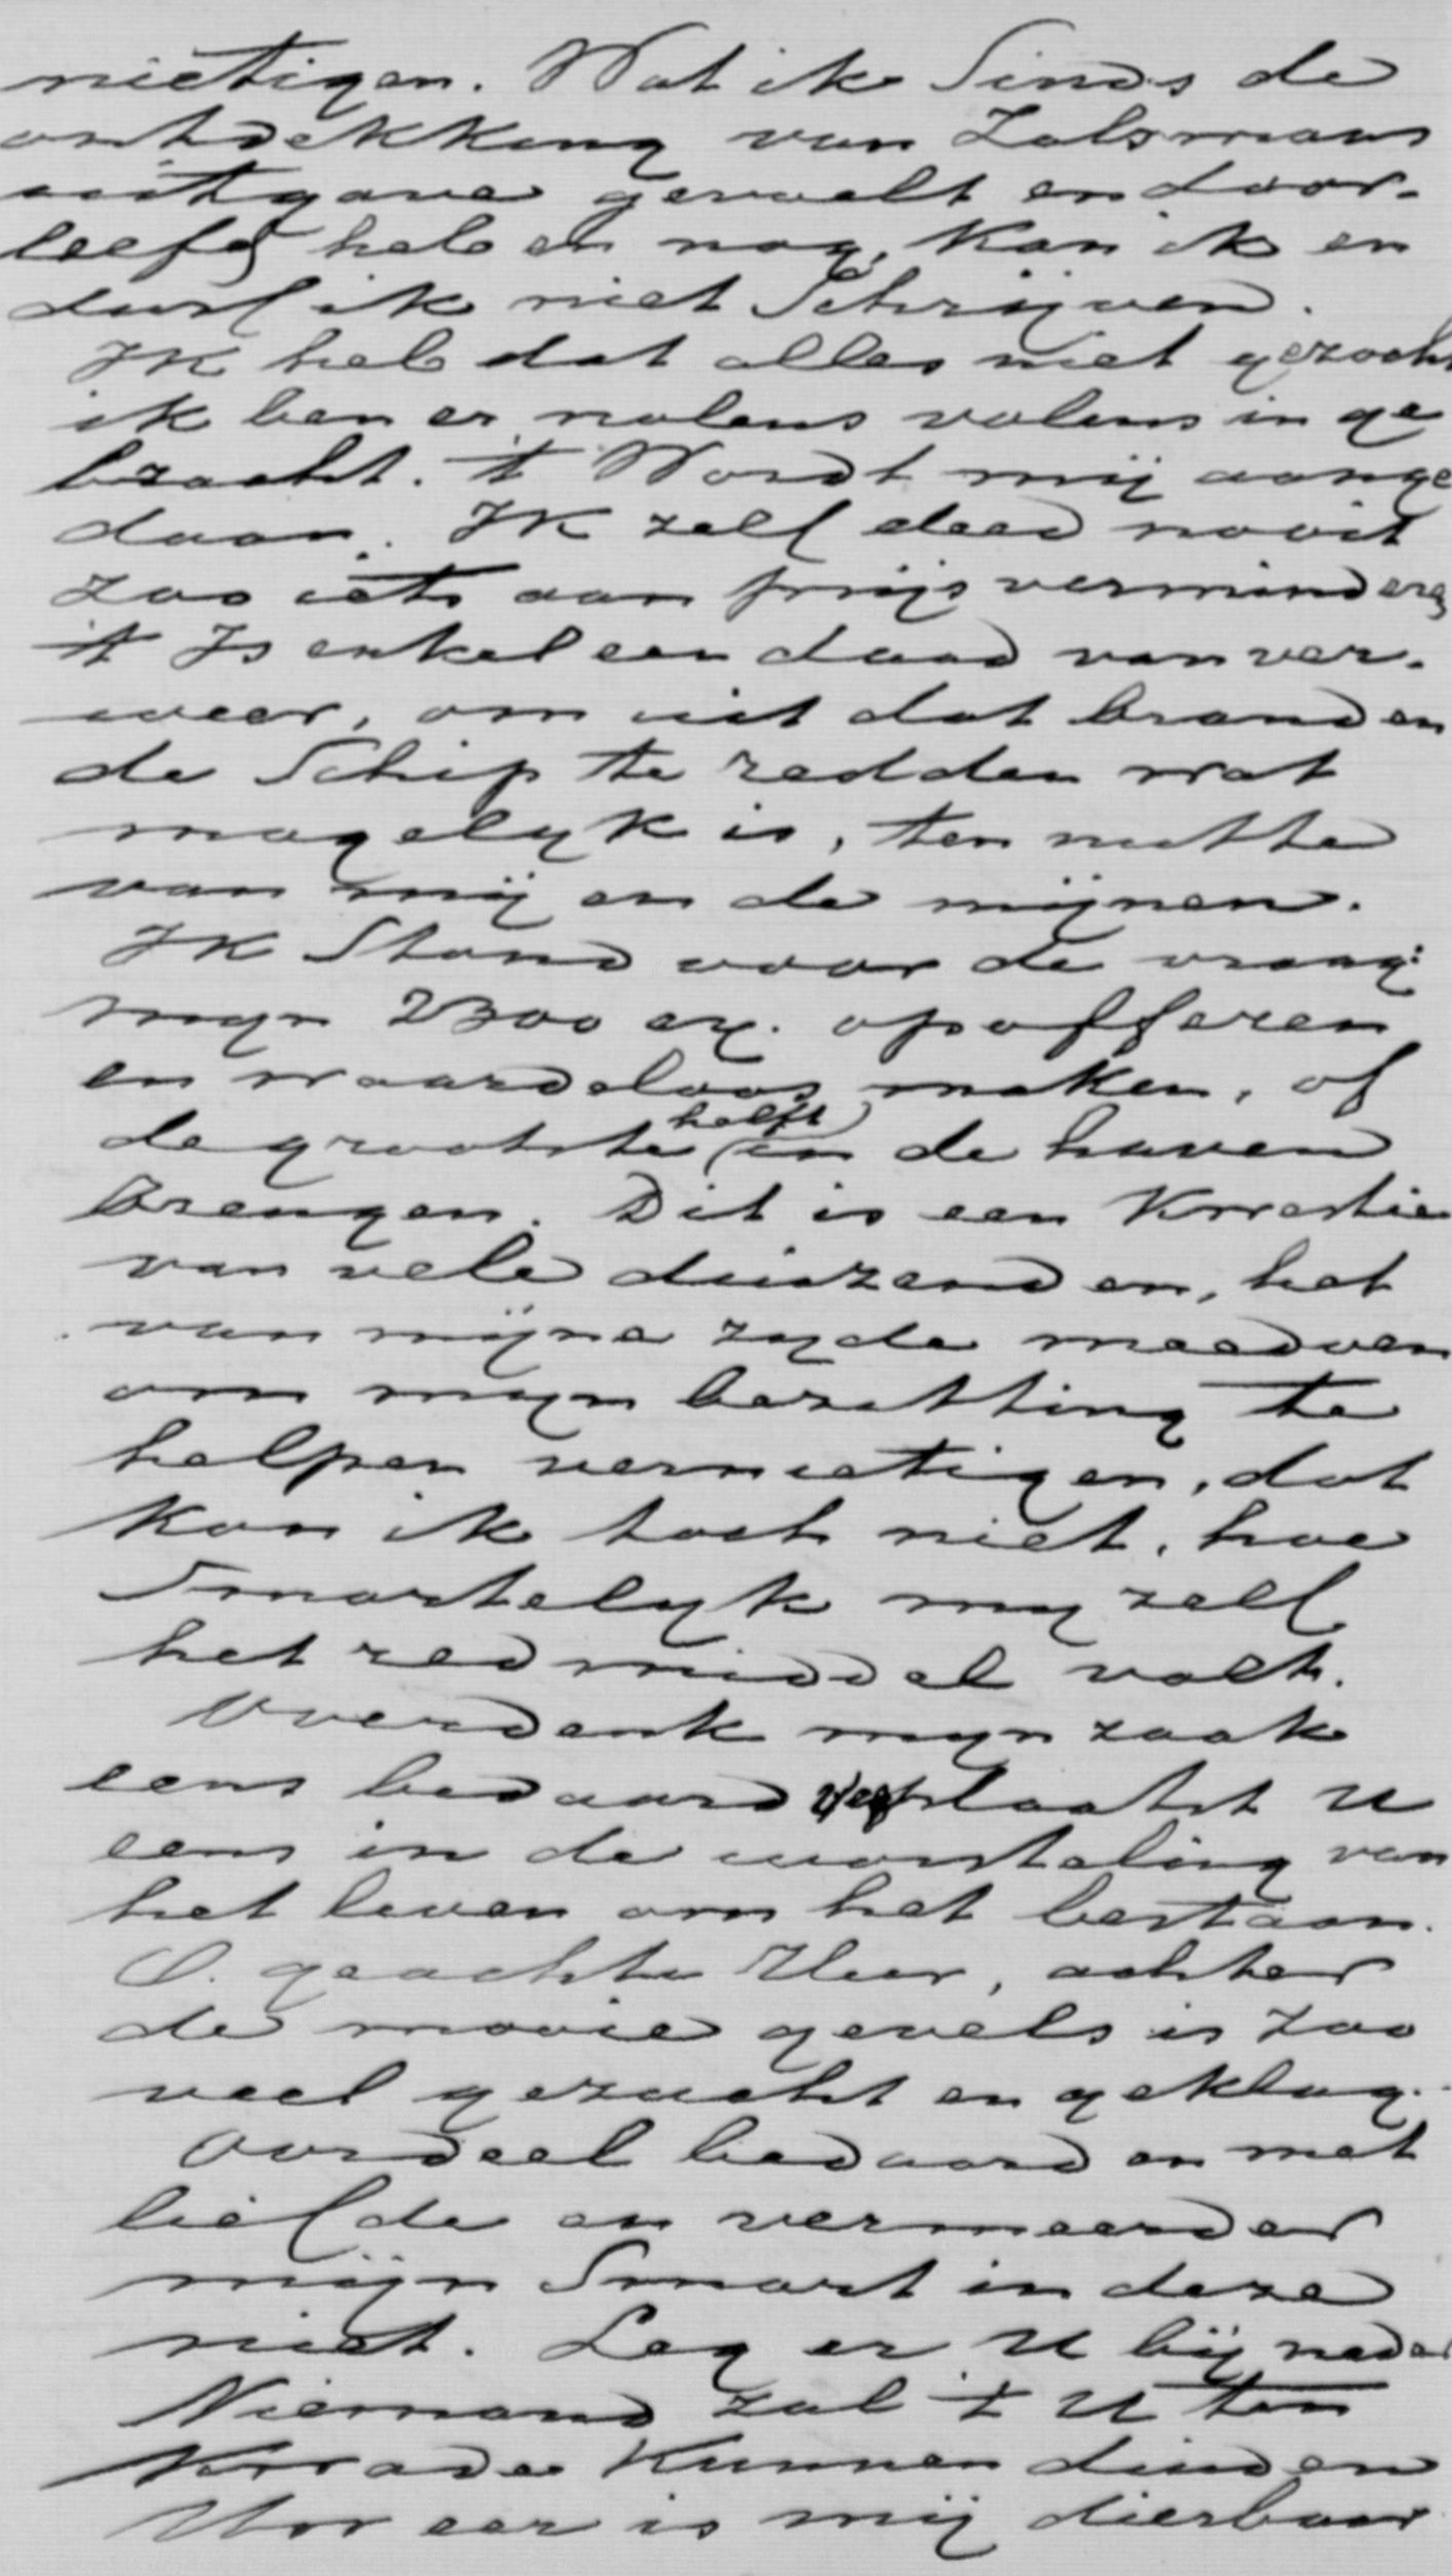 nietigen. Wat ik sinds de
ontdekking van Zalsmans
uitgave gevoelt en door-
leefd heb en nog, kan ik en
durf ik niet schrijven.
Ik heb dat alles niet gezocht
ik ben er nolens volens in ge
bracht. 't Wordt mij aange
daan. Ik zelf deed nooit
zoo iets aan prijsverminderg
't Is enkel een daad van ver-
weer, om uit dat branden
de schip te redden wat
mogelyk is, ten nutte
van mij en de mijnen.
Ik stond voor de vraag:
myn 2300 ex. opofferen
en waardeloos maken, of
de grootste helft in de haven
brengen. Dit is een Kwestie
van vele duizenden, het
van mijne zyde meedoen
om myn bezitting te
helpen vernietigen, dat
kon ik toch niet, hoe
smartelyk my zelf
het redmiddel valt.
Overdenk myn zaak
eens bedaard verplaatst U
eens in de worsteling van
het leven om het bestaan.
O. geachte Heer, achter
de mooie gevels is zoo
veel gezucht en geklag.
Oordeel bedaard en met
liefde en vermeerder
mijn smart in deze
niet. Leg er U bij neder
Niemand zal 't U ten
Kwade kunnen duiden
Uw eer is mij dierbaar